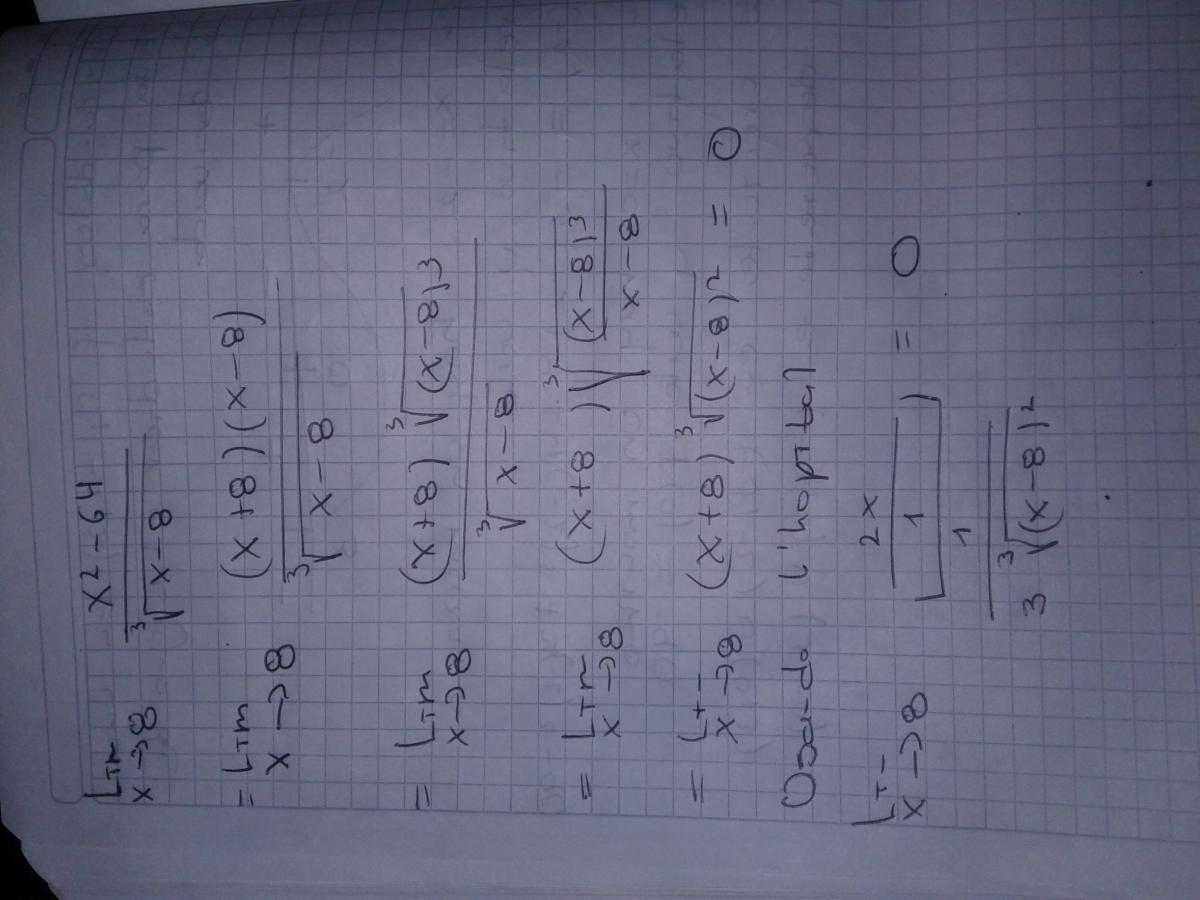 Lim x→8 x²-64 / ∛(x-8)
= Lim x→8 (x+8)(x-8) / ∛(x-8)
= Lim x→8 (x+8) ∛(x-8)³ / ∛(x-8)
= Lim x→8 (x+8) ∛((x-8)³ / x-8)
= Li- x→8 (x+8) ∛(x-8)² = 0
Usando L'hopital
Li- x→8 2x / [1 / 3 ∛(x-8)²] = 0
1